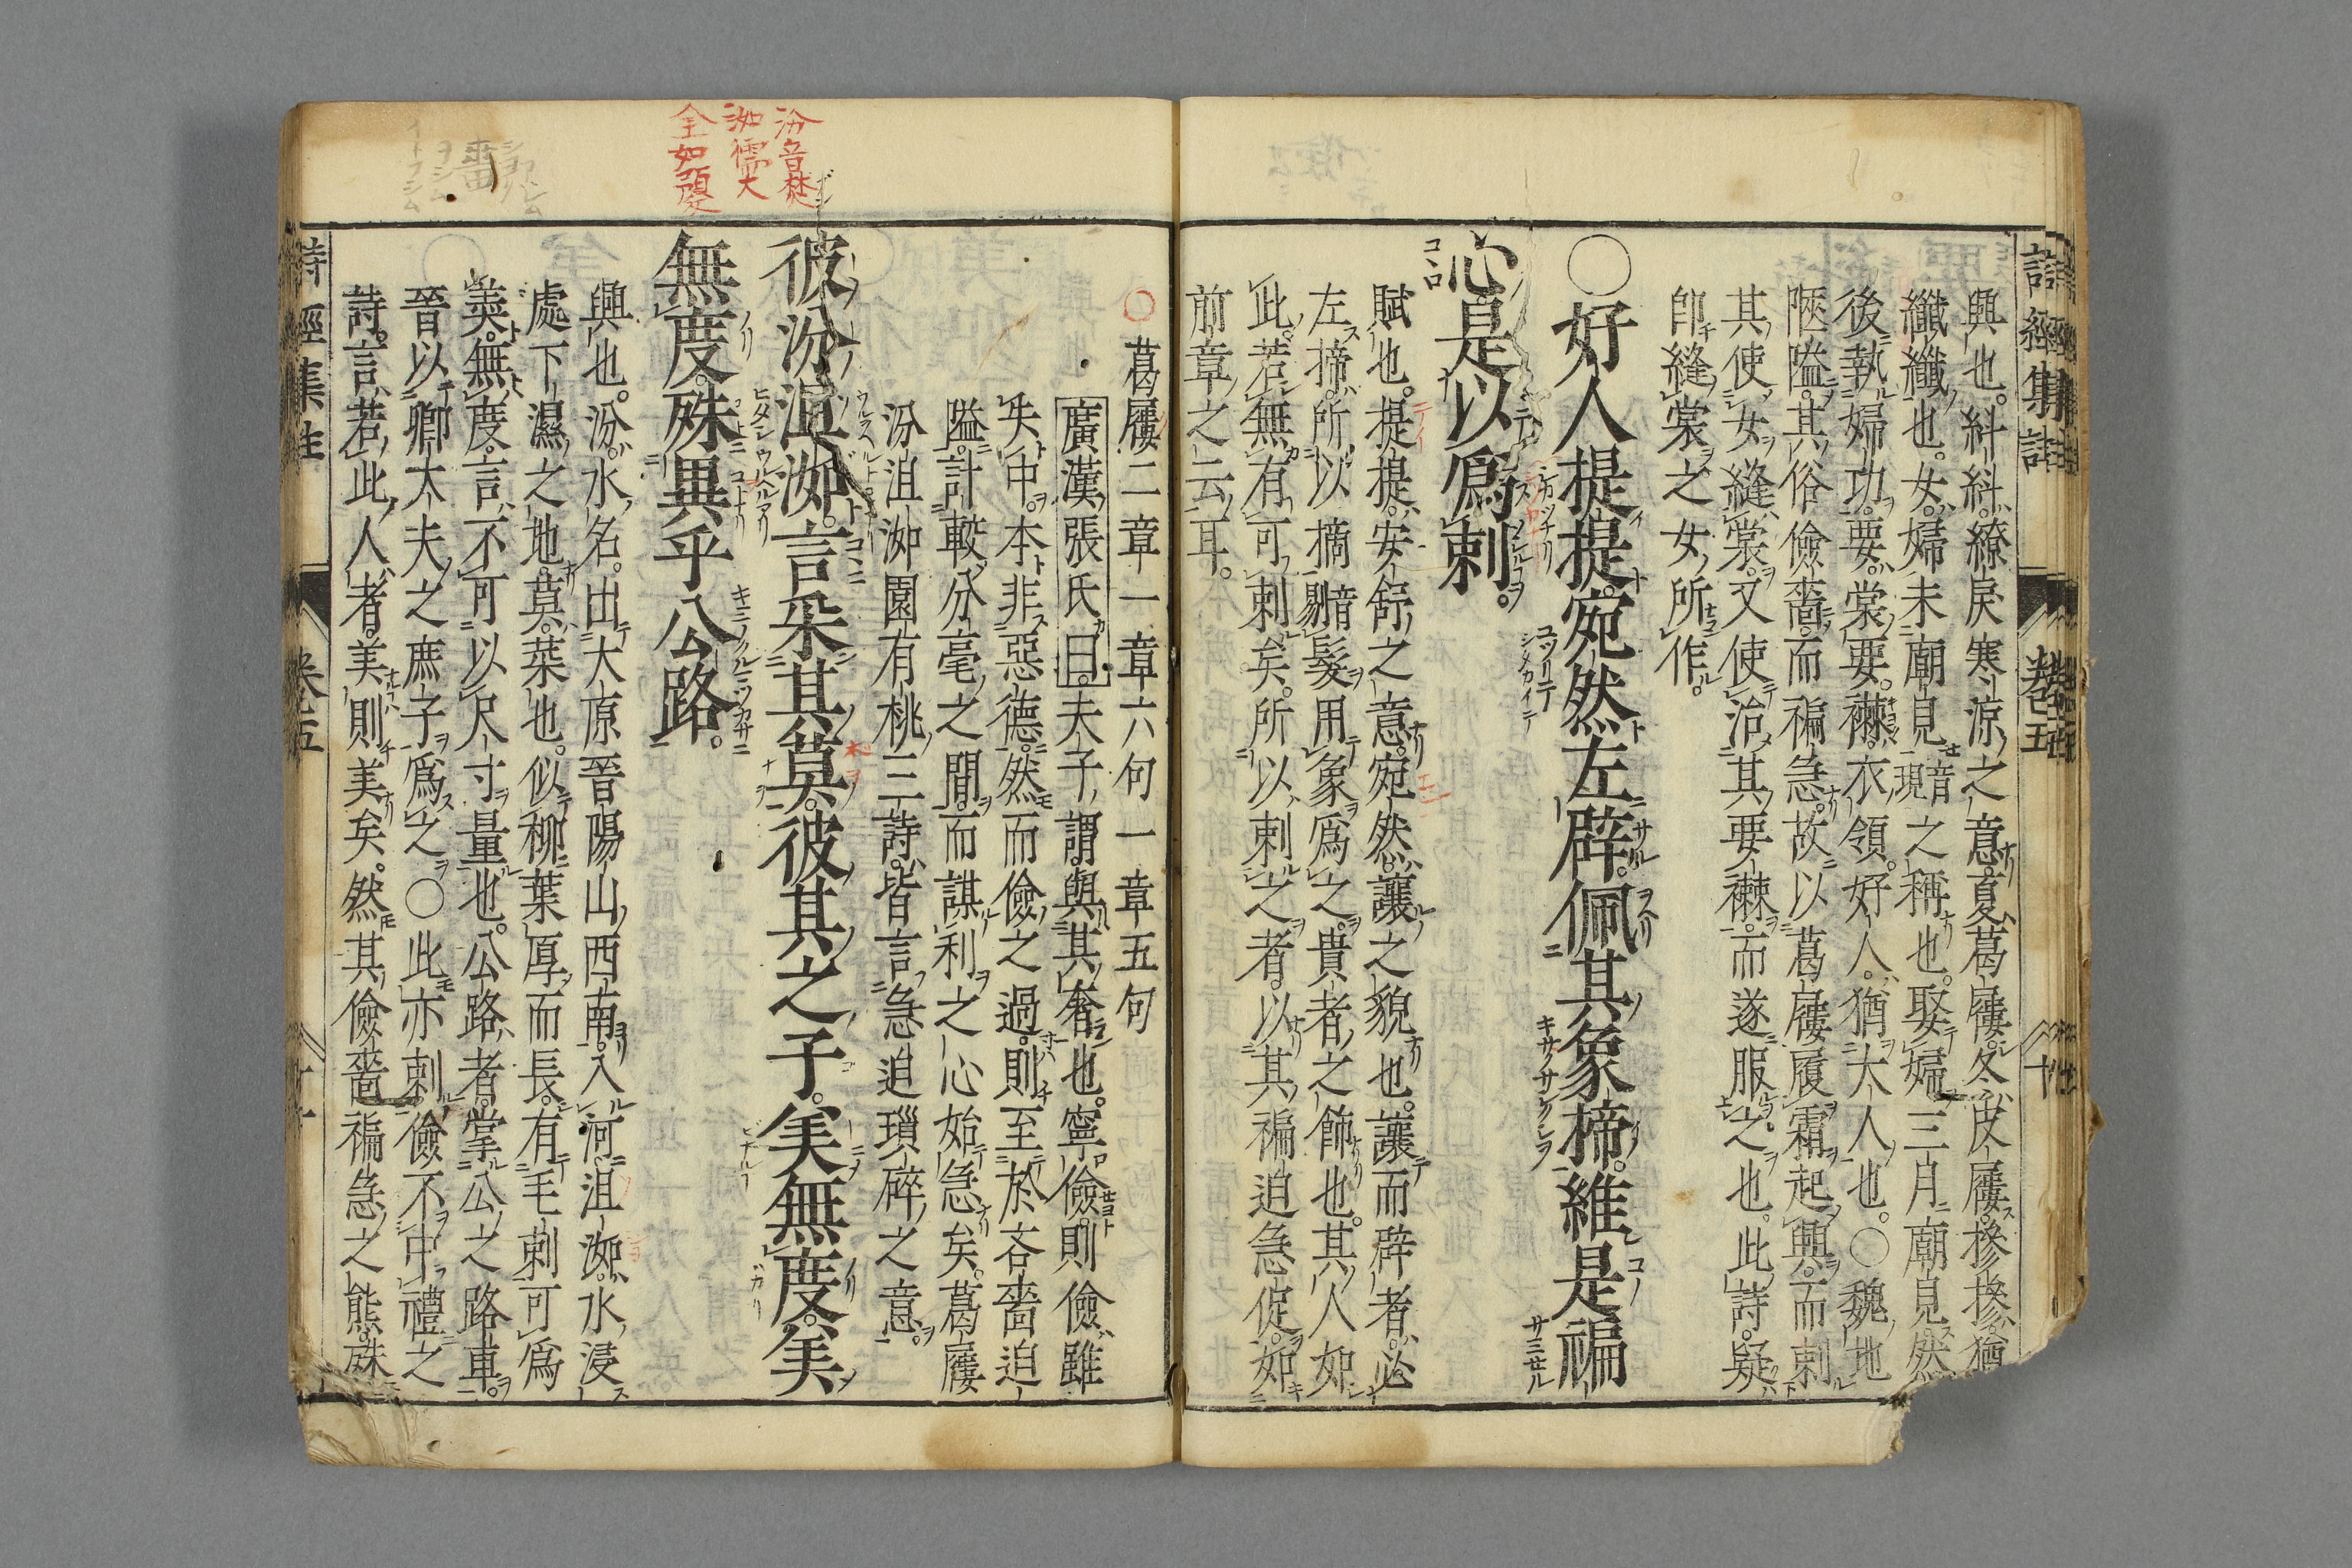 詩經集註 卷五 十
興也。糾糾。繚戾寒涼之意。夏葛屨。冬皮屨。摻摻。猶
纖纖也。女。婦未廟見音現之稱也。娶婦三月廟見。然
後執婦功。要。裳要。襋。衣領。好人。猶大人也。○魏地
陿隘。其俗儉嗇而褊急。故以葛屨履霜起興。而刺
其使女縫裳。又使治其要襋。而遂服之也。此詩。疑
卽縫裳之女所作。
○好人提提。宛然左辟。佩其象揥。維是褊
心。是以爲刺。
賦也。提提。安舒之意。宛然。讓之貌也。讓而辟者。必
左。揥。所以摘音剔髮。用象爲之。貴者之飾也。其人如
此。若無有可刺矣。所以刺之者。以其褊迫急促。如
前章之云耳。
○葛屨二章一章六句一章五句
廣漢張氏曰。夫子謂與其奢也。寧儉。則儉雖
失中。本非惡德。然而儉之過。則至於吝嗇迫
隘。計較分毫之間。而謀利之心始急矣。葛屨
汾沮洳園有桃三詩。皆言急迫瑣碎之意。
汾音焚
洳儒去
仝如預
彼汾沮洳。言采其莫。彼其之子。美無度。美
無度。殊異乎公路。
興也。汾。水名。出大原晉陽山西南。入河。沮洳。水浸
處下濕之地。莫。菜也。似柳葉厚而長。有毛刺可爲
羹。無度。言不可以尺寸量也。公路者。掌公之路車。
晉以卿大夫之庶子爲之。○此亦刺儉不中禮之
詩。言若此人者。美則美矣。然其儉嗇褊急之態。殊
詩經集註 卷五 十一